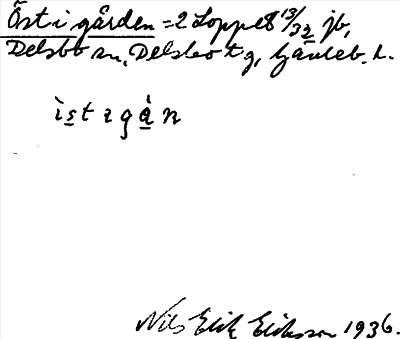 Öst i gården = 2 Loppe 8 13/32 jb,
Delsbo sn, Delsbo tg, Gävleb. l.
ìstıgán
Nils Erik Eriksson 1936.